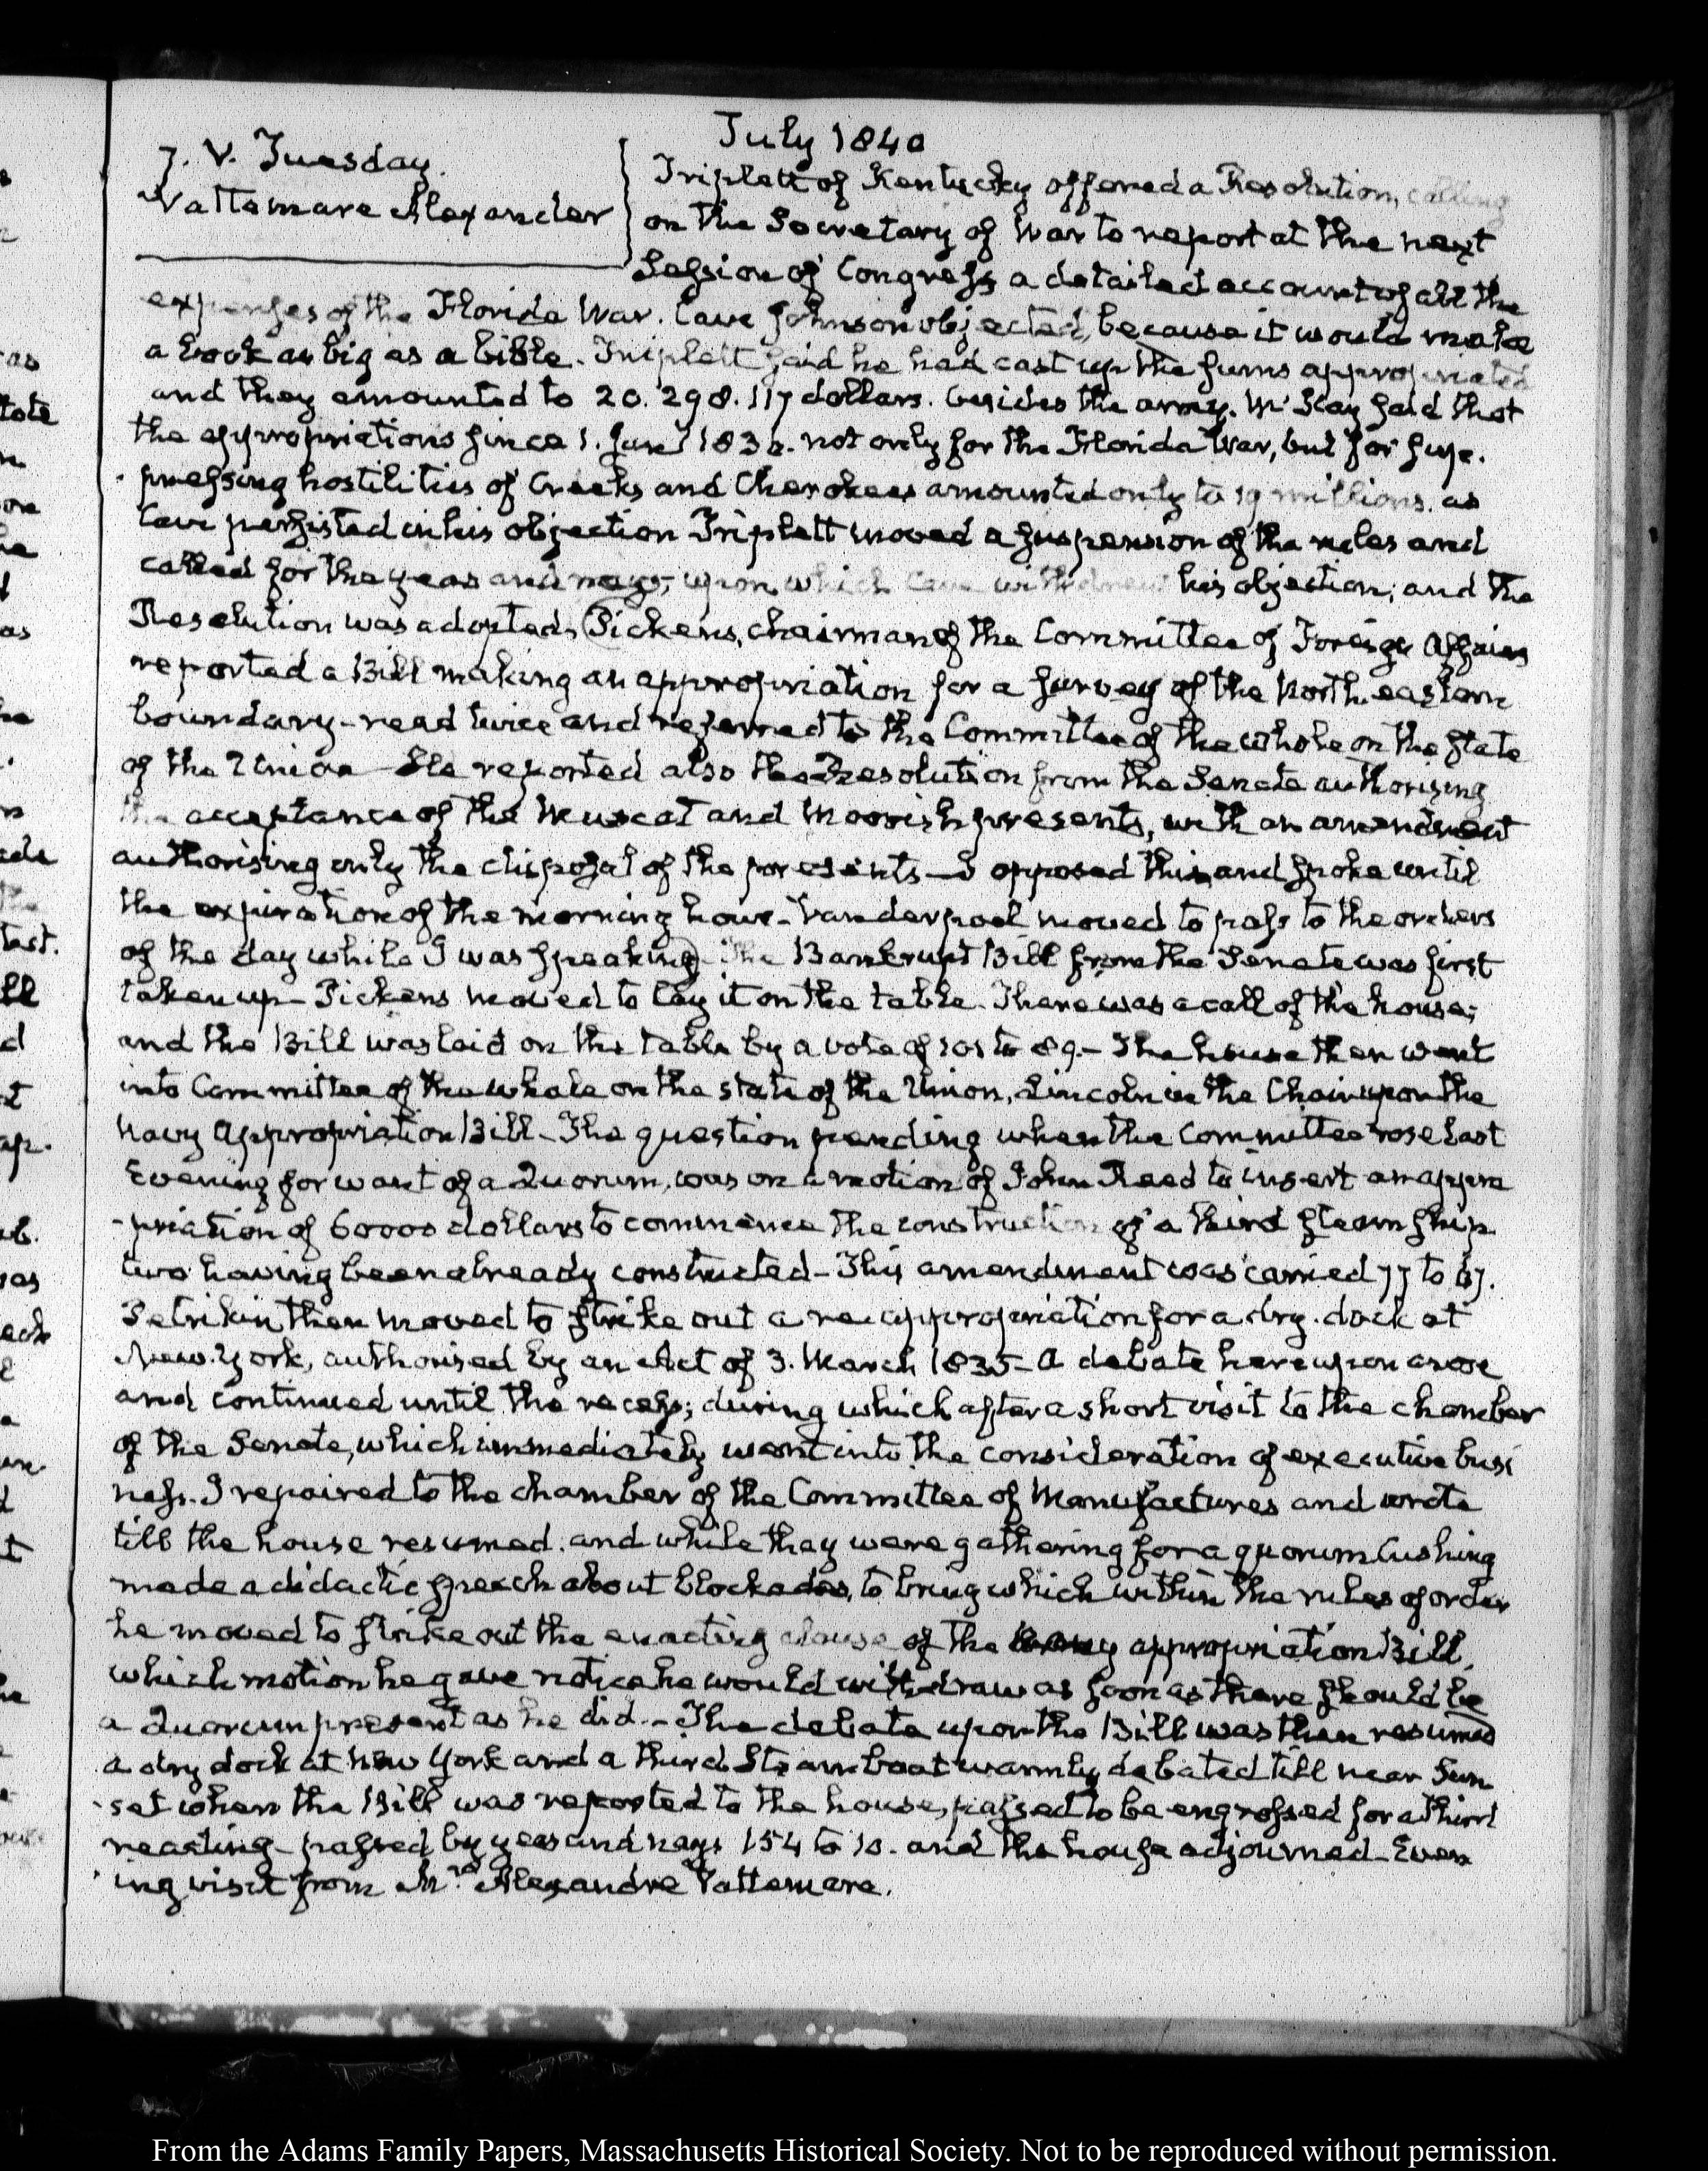 July 1840
7. V. Tuesday.
Vattemare Alexander
Triplett of Kentucky offered a Resolution, calling
on the Secretary of War to report at the next
Session of Congress a detailed account of all the
expenses of the Florida War. Cave Johnson objected, because it would make
a book as big as a bible. Triplett said he had cast up the sums appropriated
and they amounted to 20.298.117 dollars. besides the army. McKay said that
the appropriations since 1. Jany 183 not only for the Florida War, but for sup-
pressing hostilities of Creeks and Cherokees amounted only to 19 millions. as
Cave persisted in his objection Triplett moved a suspension of the rules and
called for the yeas and nays; upon which Cave withdrew his objection; and the
Resolution was adopted. Pickens, chairman of the Committee of Foreign Affairs
reported a Bill making an appropriation for a survey of the North-eastern
boundary - read twice and referred to the Committee of the whole on the state
of the Union - He reported also the Resolution from the Senate authorising
the acceptance of the Muscat and Moorish presents, with an amendment
authorising only the disposal of the presents - I opposed this and spoke until
the expiration of the morning hour - Vanderpoel moved to pass to the orders
of the day while I was speaking - The Bankrupt Bill from the Senate was first
taken up - Pickens moved to lay it on the table. There was a call of the house;
and the Bill was laid on the table by a vote of 101 to 89. - The house then went
into Committee of the whole on the state of the Union, Lincoln in the Chair upon the
Navy Appropriation Bill - The question pending when the Committee rose last
Evening for want of a Quorum, was on a motion of John Reed to insert an appro
-priation of 60000 dollars to commence the construction of a third steam ship
two having been already constructed - This amendment was carried 77 to 67.
Petrikin then moved to strike out a re-appropriation for a dry-dock at
New-York, authorised by an Act of 3. March 1835 - A debate hereupon arose
and continued until the recess; during which after a short visit to the chamber
of the Senate, which immediately went into the consideration of executive busi
ness. I repaired to the chamber of the Committee of Manufactures and wrote
till the house resumed. and while they were gathering for a quorum Cushing
made a didactic speech about blockades, to bring which within the rules of order
he moved to strike out the enacting clause of the navy appropriation Bill,
which motion he gave notice he would withdraw as soon as there should be
a Quorum present as he did. - The debate upon the Bill was then resumed
a dry dock at New York and a third Steam boat warmly debated till near Sun
-set when the Bill was reported to the house, passed to be engrossed for a third
reading - passed by yeas and nays 154 to 10. and the house adjourned - Even
-ing visit from Mr. Alexandre Vattemare.
From the Adams Family Papers, Massachusetts Historical Society. Not to be reproduced without permission.